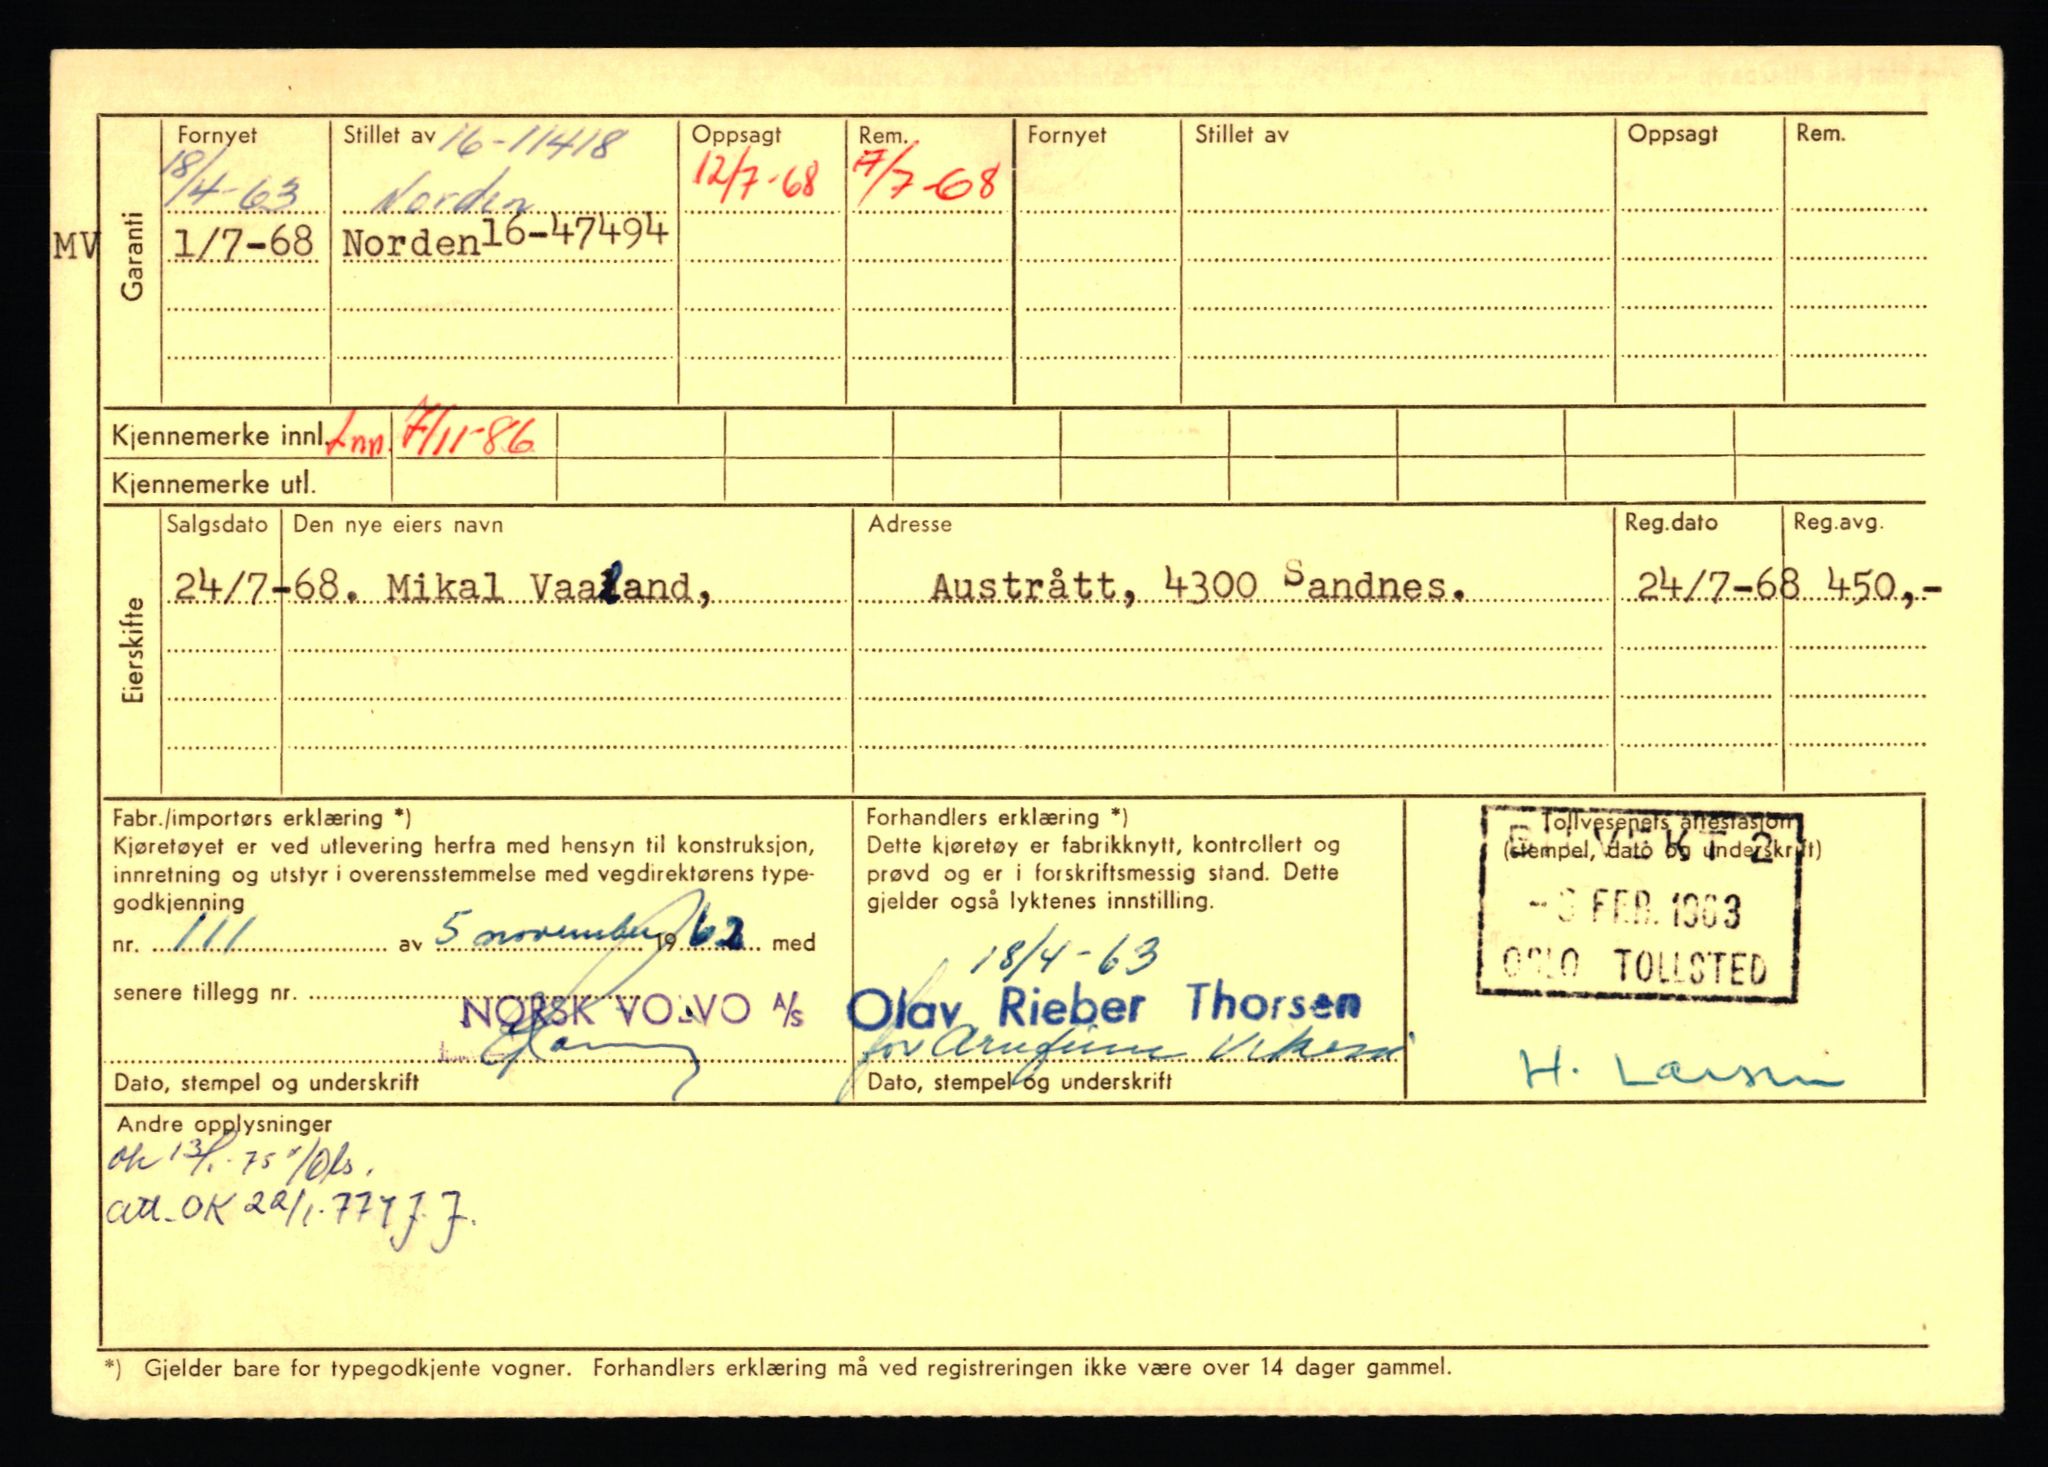 Fornyet Stillet av 16-11418 Oppsagt Rem. Fornyet Stillet av Oppsagt Rem.
18/4-63 Norden 12/7-68 /7-68
MV Garanti 1/7-68 Norden 16-47494
Kjennemerke innl. Inn. 7/11-86
Kjennemerke utl.
Salgsdato Den nye eiers navn Adresse Reg.dato Reg.avg.
Eierskifte 24/7-68. Mikal Vaaland, Austrått, 4300 Sandnes. 24/7-68 450,-
Fabr./importørs erklæring *)
Kjøretøyet er ved utlevering herfra med hensyn til konstruksjon,
innretning og utstyr i overensstemmelse med vegdirektørens type-
godkjenning
nr. 111 av 5 november 1962 med
senere tillegg nr.
NORSK VOLVO A/S
Dato, stempel og underskrift
Forhandlers erklæring *)
Dette kjøretøy er fabrikknytt, kontrollert og
prøvd og er i forskriftsmessig stand. Dette
gjelder også lyktenes innstilling.
18/4-63
Olav Rieber Thorsen
for
Dato, stempel og underskrift
Tollvesenets attestasjon
(stempel, dato og underskrift)
FEB. 1963
OSLO TOLLSTED
H. Larsen
Andre opplysninger
ok 13/1-75
att. OK 22/1-77 J.J.
*) Gjelder bare for typegodkjente vogner. Forhandlers erklæring må ved registreringen ikke være over 14 dager gammel.